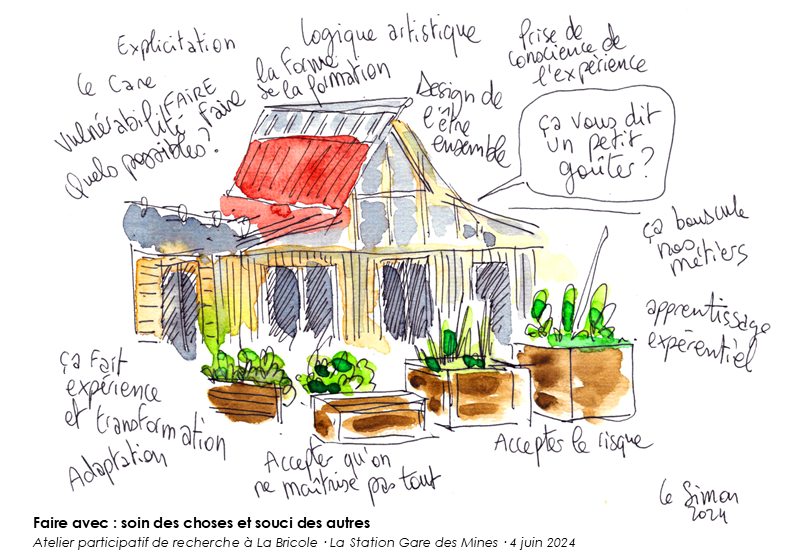 Explicitation
Logique artistique
Prise de
conscience de
l'expérience
le Care
la Forme
de la formation
Vulnérabilité
FAIRE
faire
Quels possibles ?
Design de
l'être
ensemble
ça vous dit
un petit
goûter ?
ça bouscule
nos
métiers
apprentissage
expérentiel
ça fait
expérience
et transformation
Adaptation
Accepter qu'on
ne maîtrise pas tout
Accepter le risque
le Simon
2024
Faire avec : soin des choses et souci des autres
Atelier participatif de recherche à La Bricole · La Station Gare des Mines · 4 juin 2024